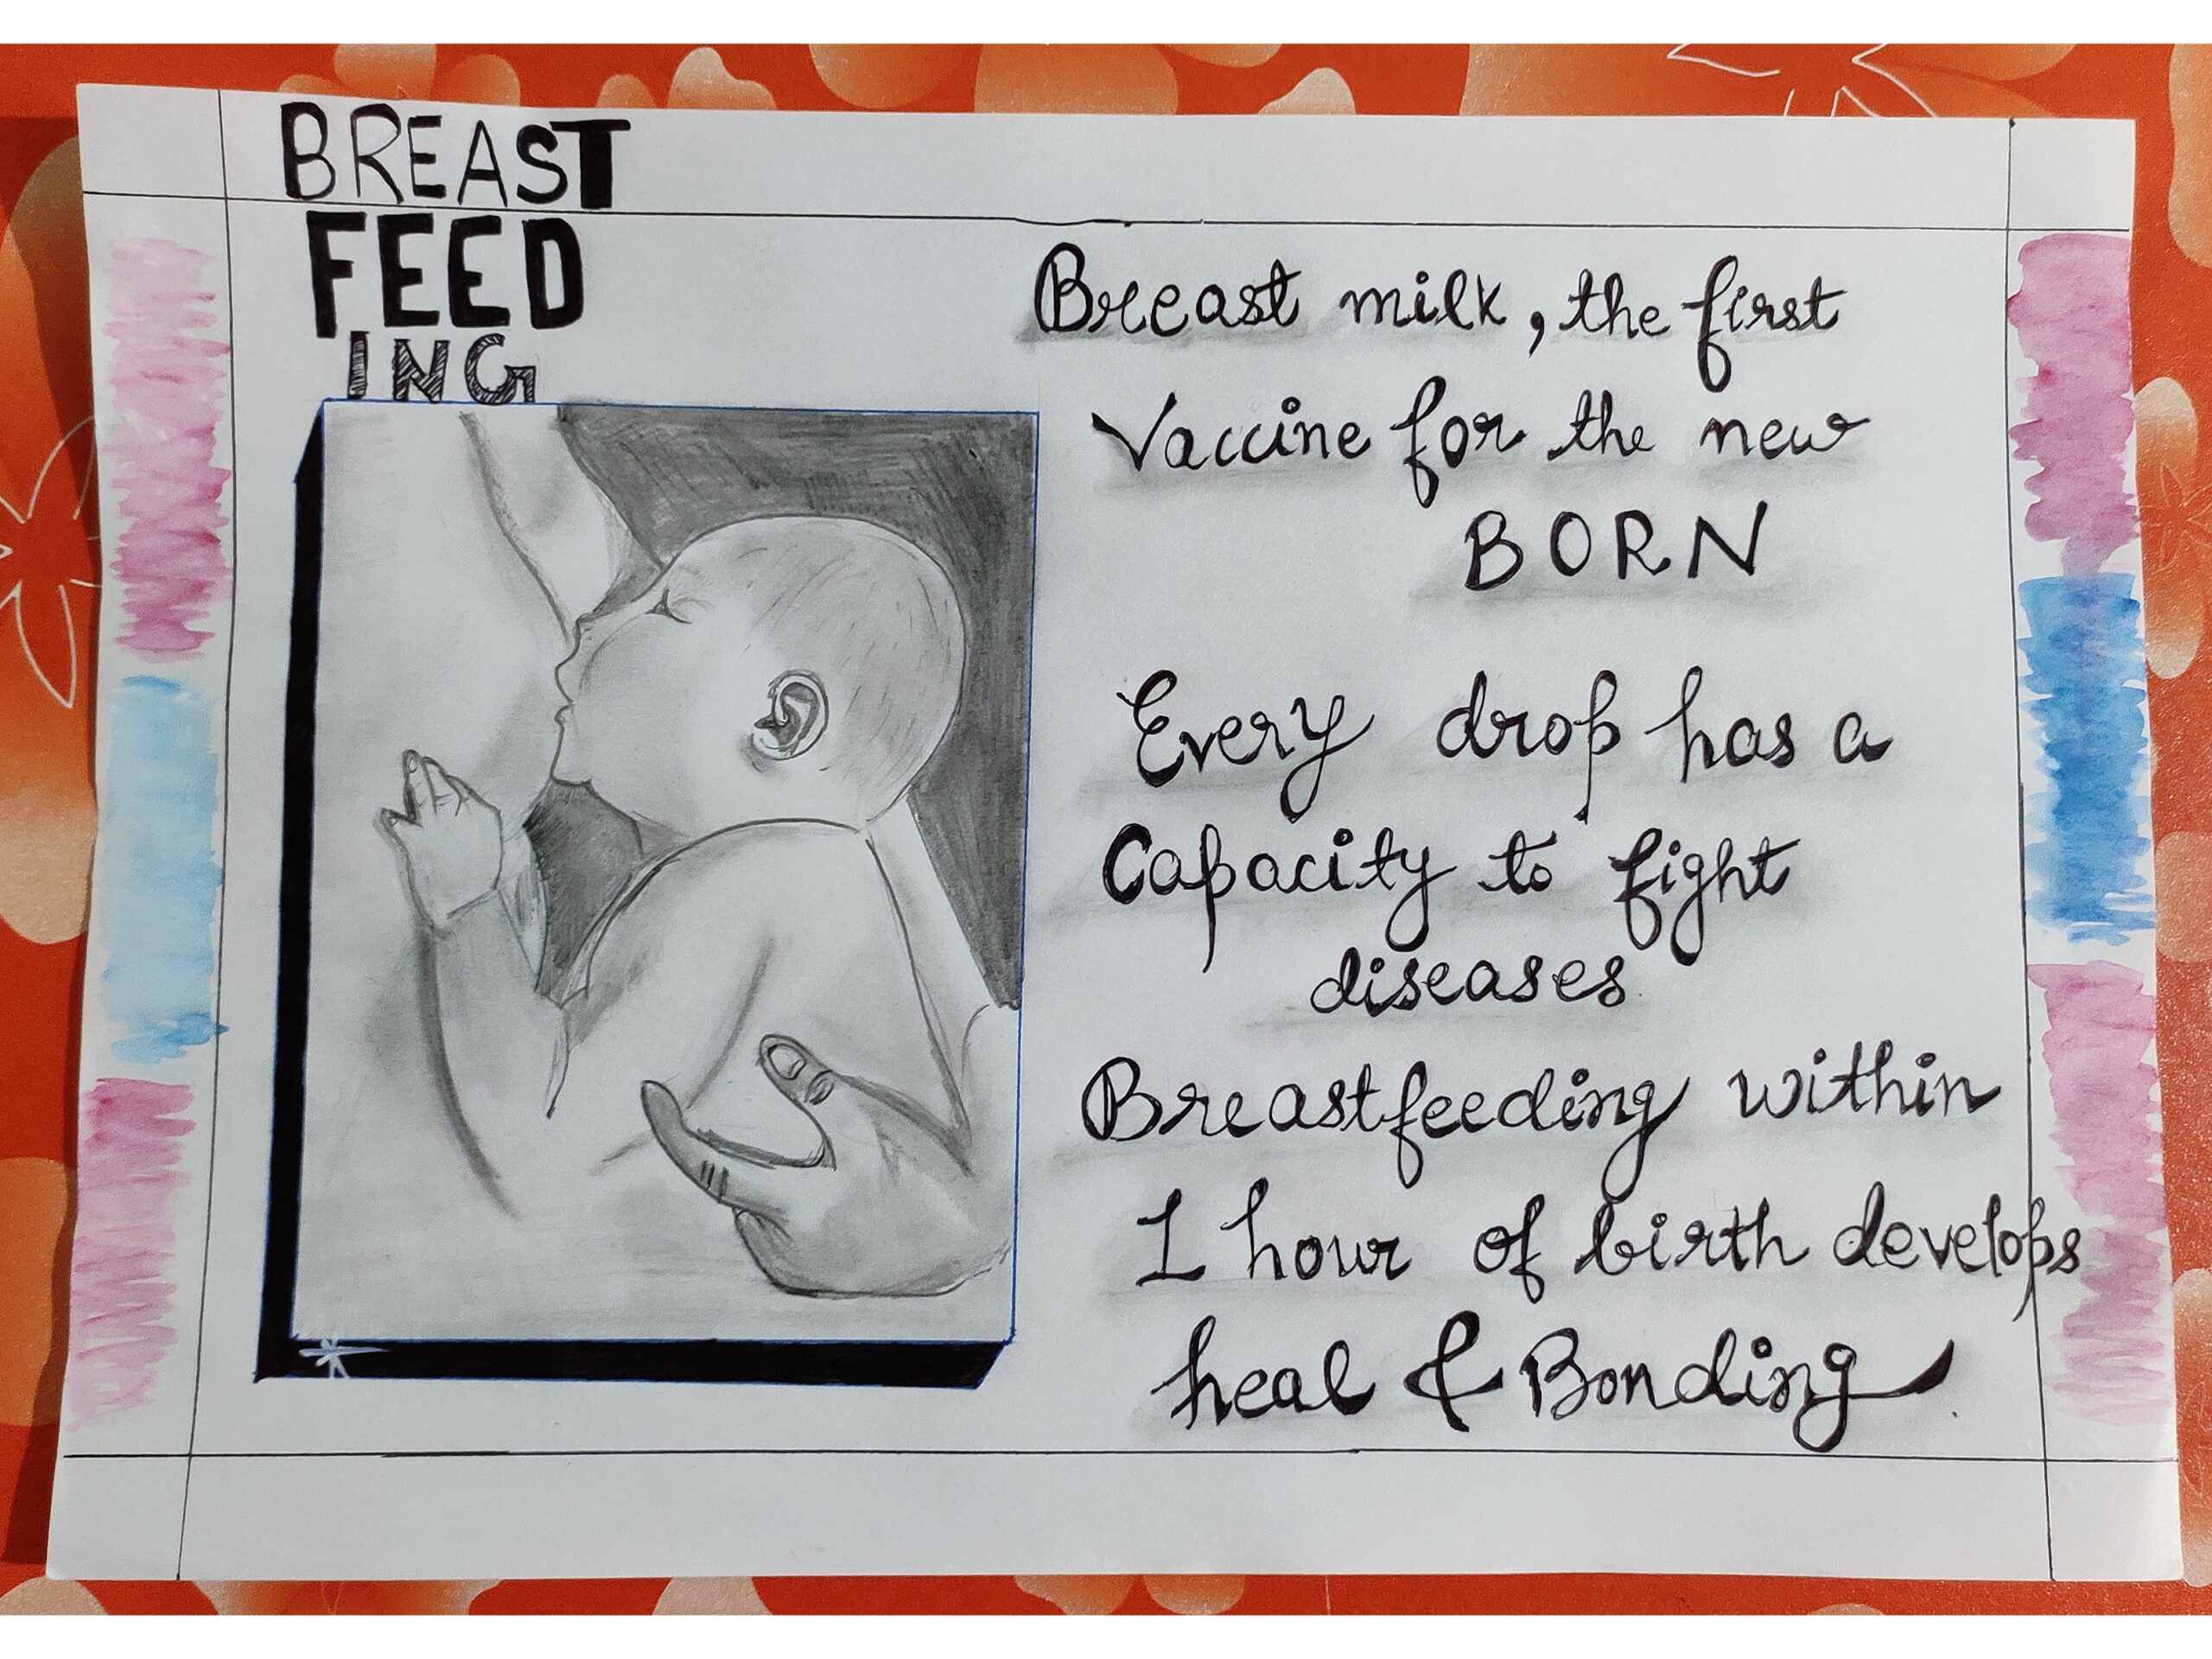 BREAST
FEED
ING
Breast milk, the first
Vaccine for the new
BORN
Every drop has a
Capacity to fight
diseases
Breastfeeding within
1 hour of birth develops
heal & Bonding